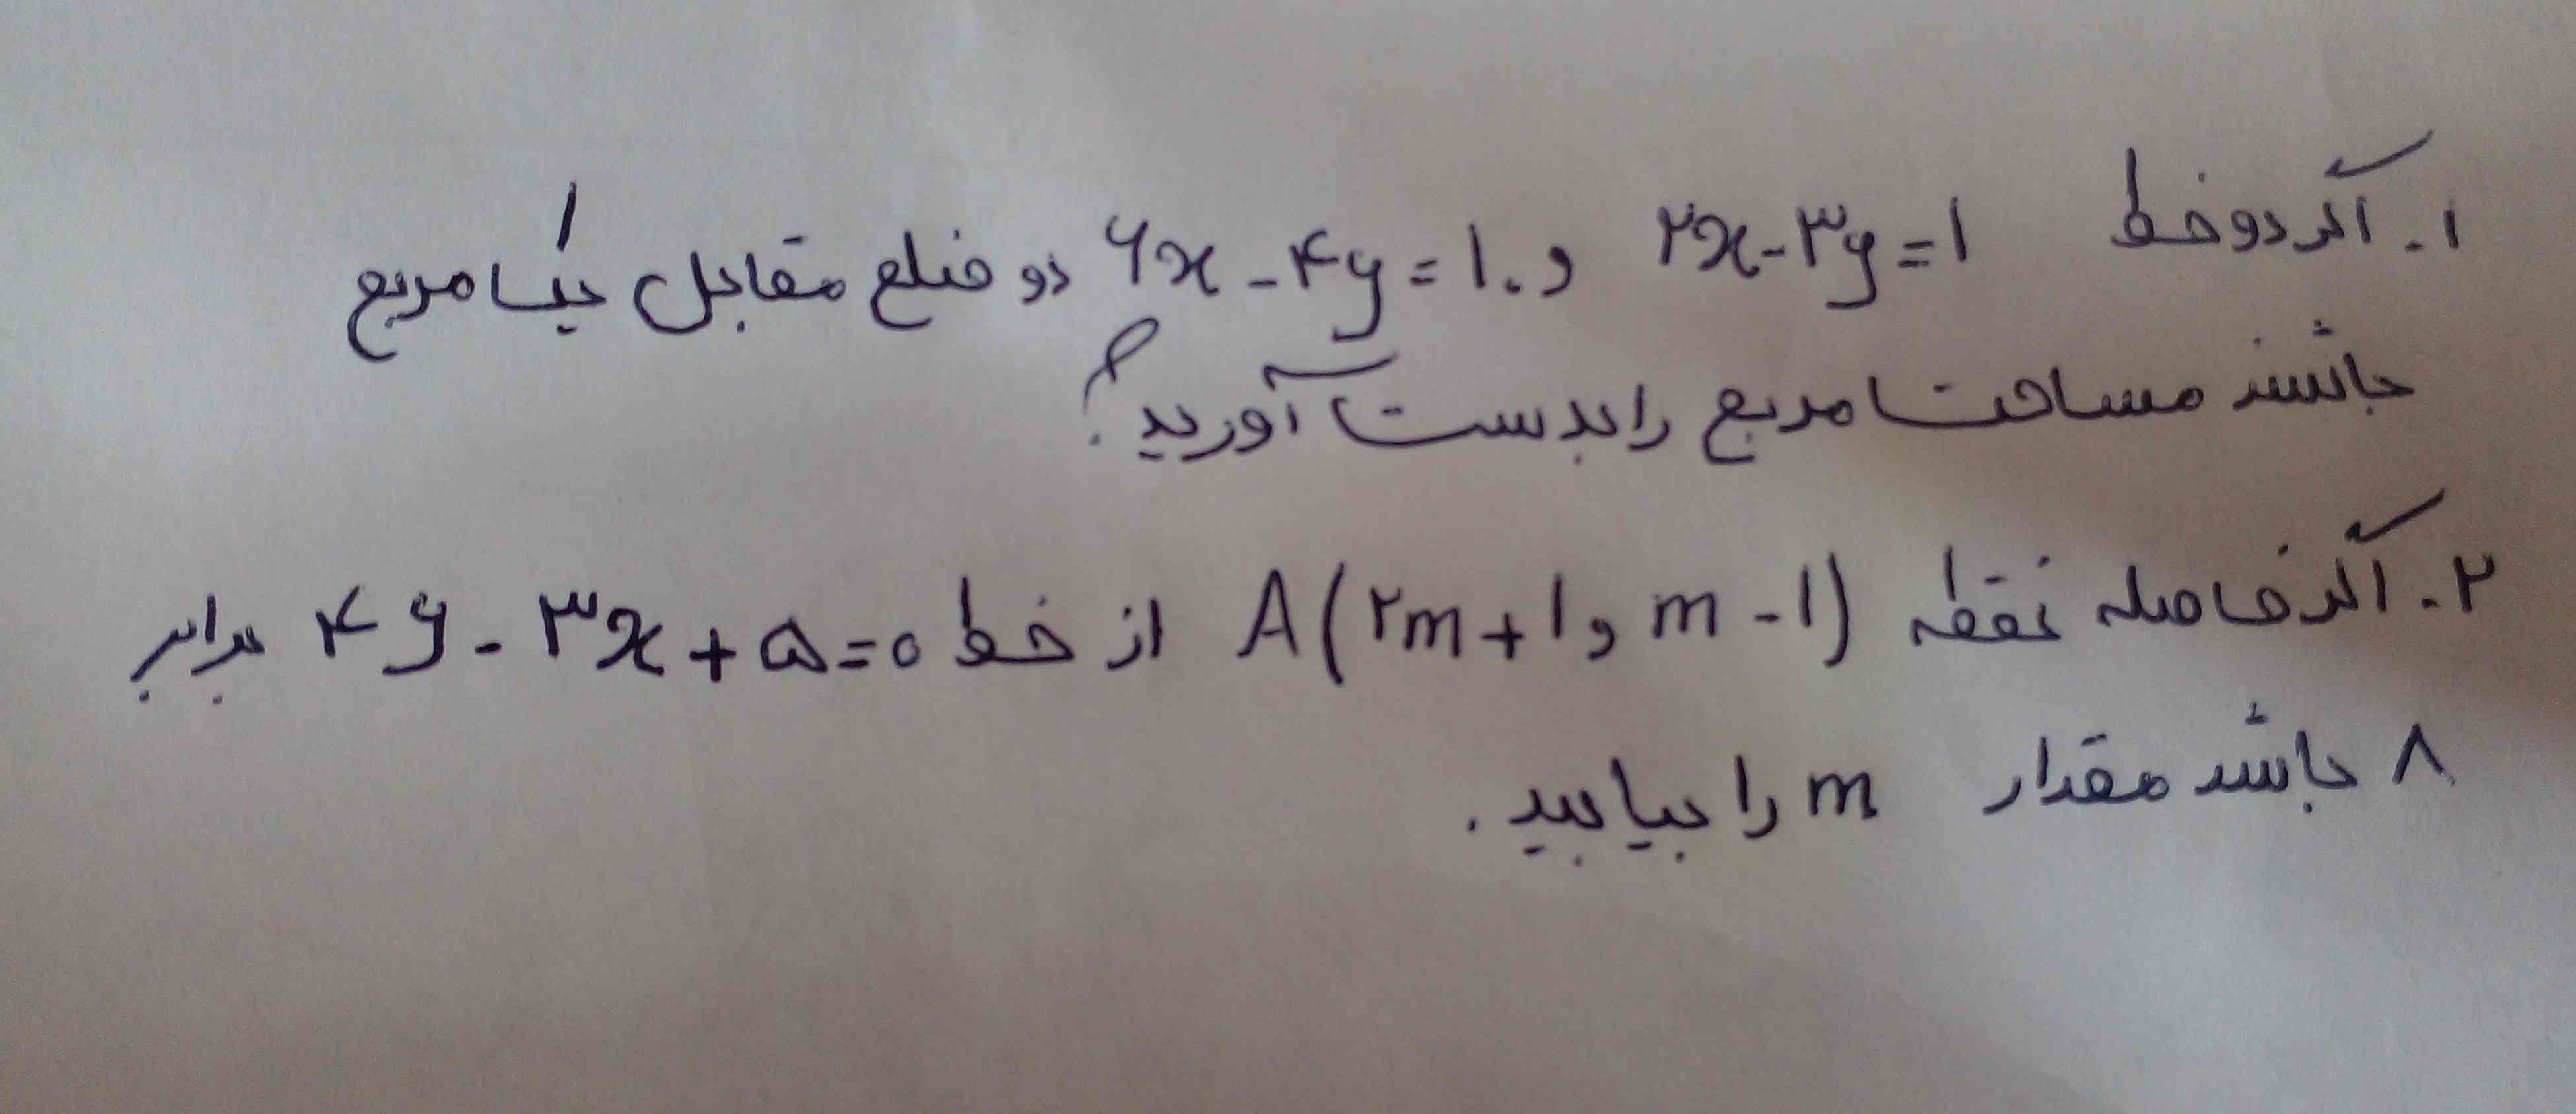 ۱. اگر دو خط ۲x-۳y=۱ و ۶x-۴y=۱۰ دو ضلع مقابل یک مربع
باشند مساحت مربع را بدست آورید؟
۲. اگر فاصله نقطه A(۲m+۱ و m-۱) از خط ۴y-۳x+۵=۰ برابر
۸ باشد مقدار m را بیابید.